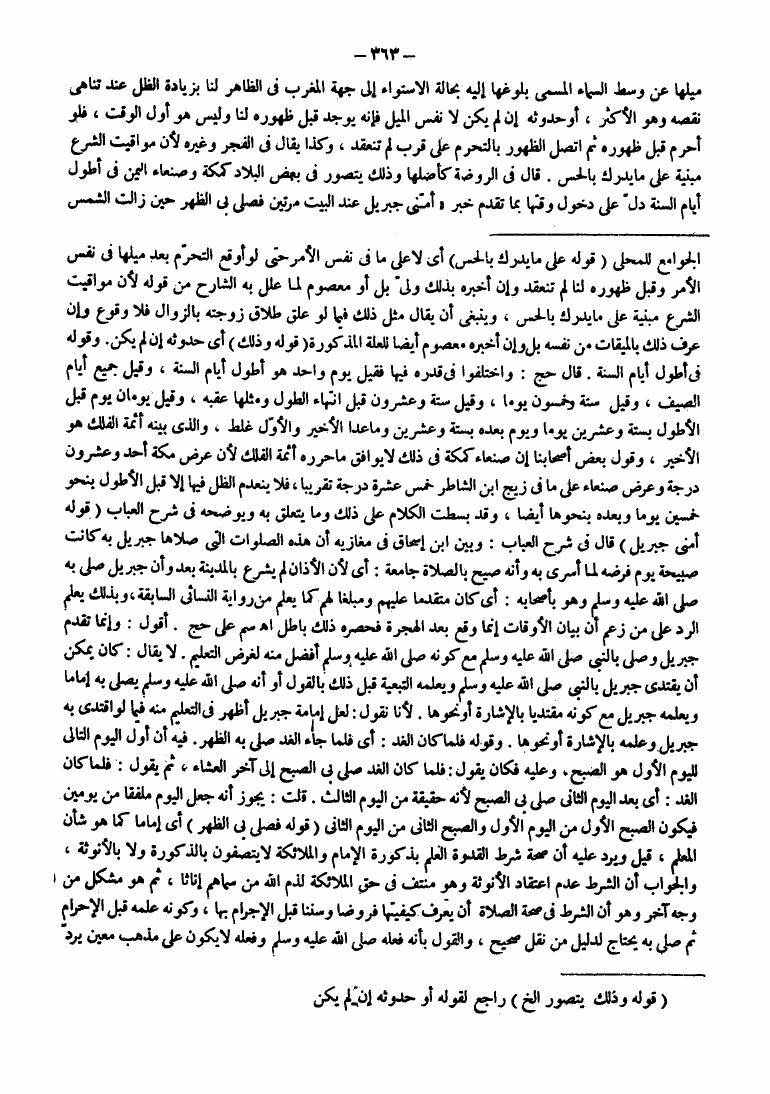 — ٣٦٣ —
ميلها عن وسط السماء المسمى بلوغها إليه بحالة الاستواء إلى جهة المغرب فى الظاهر لنا بزيادة الظل عند تناهى
نقصه وهو الأكثر ، أوحدوثه إن لم يكن لا نفس الميل فإنه يوجد قبل ظهوره لنا وليس هو أول الوقت ، فلو
أحرم قبل ظهوره ثم اتصل الظهور بالتحرم على قرب لم تنعقد ، وكذا يقال فى الفجر وغيره لأن مواقيت الشرع
مبنية على مايدرك بالحس . قال فى الروضة كأصلها وذلك يتصور فى بعض البلاد كمكة وصنعاء اليمن فى أطول
أيام السنة دلّ على دخول وقتها بما تقدم خبر « أمنى جبريل عند البيت مرتين فصلى بى الظهر حين زالت الشمس
الجوامع للمحلى ( قوله على مايدرك بالحس) أى لاعلى ما فى نفس الأمرحتى لوأوقع التحرّم بعد ميلها فى نفس
الأمر وقبل ظهوره لنا لم تنعقد وإن أخبره بذلك ولىّ بل أو معصوم لما علل به الشارح من قوله لأن مواقيت
الشرع مبنية على مايدرك بالحس ، وينبغى أن يقال مثل ذلك فيما لو علق طلاق زوجته بالزوال فلا وقوع وإن
عرف ذلك بالميقات من نفسه بل وإن أخبره معصوم أيضا للعلة المذكورة ( قوله وذلك ) أى حدوثه إن لم يكن. وقوله
فى أطول أيام السنة . قال حج : واختلفوا فى قدره فيها فقيل يوم واحد هو أطول أيام السنة ، وقيل جميع أيام
الصيف ، وقيل ستة وخمسون يوما ، وقيل ستة وعشرون قبل انتهاء الطول ومثلها عقبه ، وقيل يومان يوم قبل
الأطول بستة وعشرين يوما ويوم بعده بستة وعشرين وماعدا الأخير والأوّل غلط ، والذى بينه أئمة الفلك هو
الأخير ، وقول بعض أصحابنا إن صنعاء كمكة فى ذلك لايوافق ماحرره أئمة الفلك لأن عرض مكة أحد وعشرون
درجة وعرض صنعاء على ما فى زيج ابن الشاطر خمس عشرة درجة تقريبا ، فلا ينعدم الظل فيها إلا قبل الأطول بنحو
خمسين يوما وبعده بنحوها أيضا ، وقد بسطت الكلام على ذلك وما يتعلق به ويوضحه فى شرح العباب ( قوله
أمنى جبريل ) قال فى شرح العباب : وبين ابن إسحاق فى مغازيه أن هذه الصلوات التى صلاها جبريل به كانت
صبيحة يوم فرضه لما أسرى به وأنه صيح بالصلاة جامعة : أى لأن الأذان لم يشرع بالمدينة بعد وأن جبريل صلى به
صلى الله عليه وسلم وهو بأصحابه : أى كان متقدما عليهم ومبلغا لهم كما يعلم من رواية النسائى السابقة ، وبذلك يعلم
الرد على من زعم أن بيان الأوقات إنما وقع بعد الهجرة فحصره ذلك باطل اه سم على حج . أقول : وإنما تقدم
جبريل وصلى بالنبى صلى الله عليه وسلم مع كونه صلى الله عليه وسلم أفضل منه لغرض التعليم . لا يقال : كان يمكن
أن يقتدى جبريل بالنبى صلى الله عليه وسلم ويعلمه التبعية قبل ذلك بالقول أو أنه صلى الله عليه وسلم يصلى به إماما
ويعلمه جبريل مع كونه مقتديا بالإشارة أونحوها . لأنا نقول : لعل إمامة جبريل أظهر فى التعليم منه فيما لو اقتدى به
جبريل وعلمه بالإشارة أونحوها . وقوله فلما كان الغد : أى فلما جاء الغد صلى به الظهر . فيه أن أول اليوم التالى
لليوم الأول هو الصبح ، وعليه فكان يقول : فلما كان الغد صلى بى الصبح إلى آخر العشاء ، ثم يقول : فلما كان
الغد : أى بعد اليوم الثانى صلى بى الصبح لأنه حقيقة من اليوم الثالث . قلت : يجوز أنه جعل اليوم ملفقا من يومين
فيكون الصبح الأول من اليوم الأول والصبح الثانى من اليوم الثانى ( قوله فصلى بى الظهر ) أى إماما كما هو شأن
المعلم ، قيل ويرد عليه أن صحة شرط القدوة العلم بذكورة الإمام والملائكة لايتصفون بالذكورة ولا بالأنوثة ،
والجواب أن الشرط عدم اعتقاد الأنوثة وهو منتف فى حق الملائكة لذم الله من سماهم إناثا ، ثم هو مشكل من
وجه آخر وهو أن الشرط فى صحة الصلاة أن يعرف كيفيتها فروضا وسننا قبل الإحرام بها ، وكونه علمه قبل الإحرام
ثم صلى به يحتاج لدليل من نقل صحيح ، والقول بأنه فعله صلى الله عليه وسلم وفعله لايكون على مذهب معين يردّ
( قوله وذلك يتصور الخ ) راجع لقوله أو حدوثه إن لم يكن